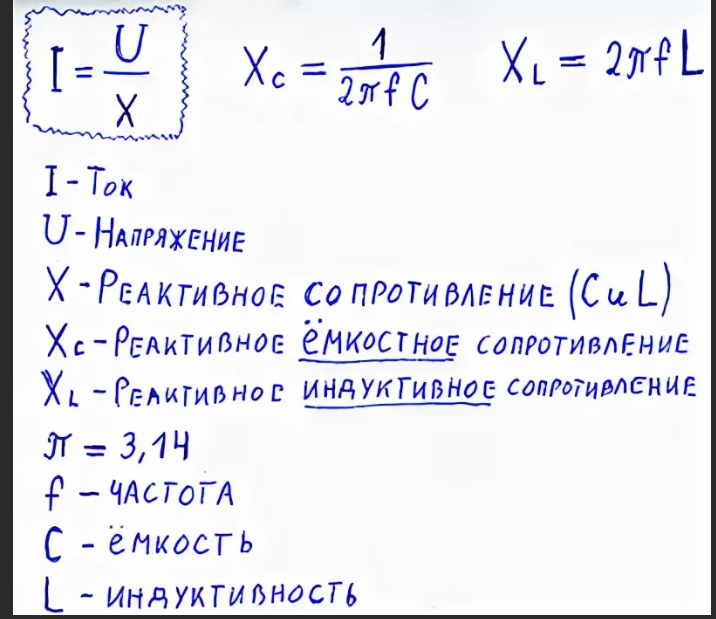 I = U/X   Xc = 1/(2πfC)   XL = 2πfL
I - Ток
U - Напряжение
X - Реактивное сопротивление (C и L)
Xc - Реактивное ёмкостное сопротивление
XL - Реактивное индуктивное сопротивление
π = 3,14
f - частота
C - ёмкость
L - индуктивность